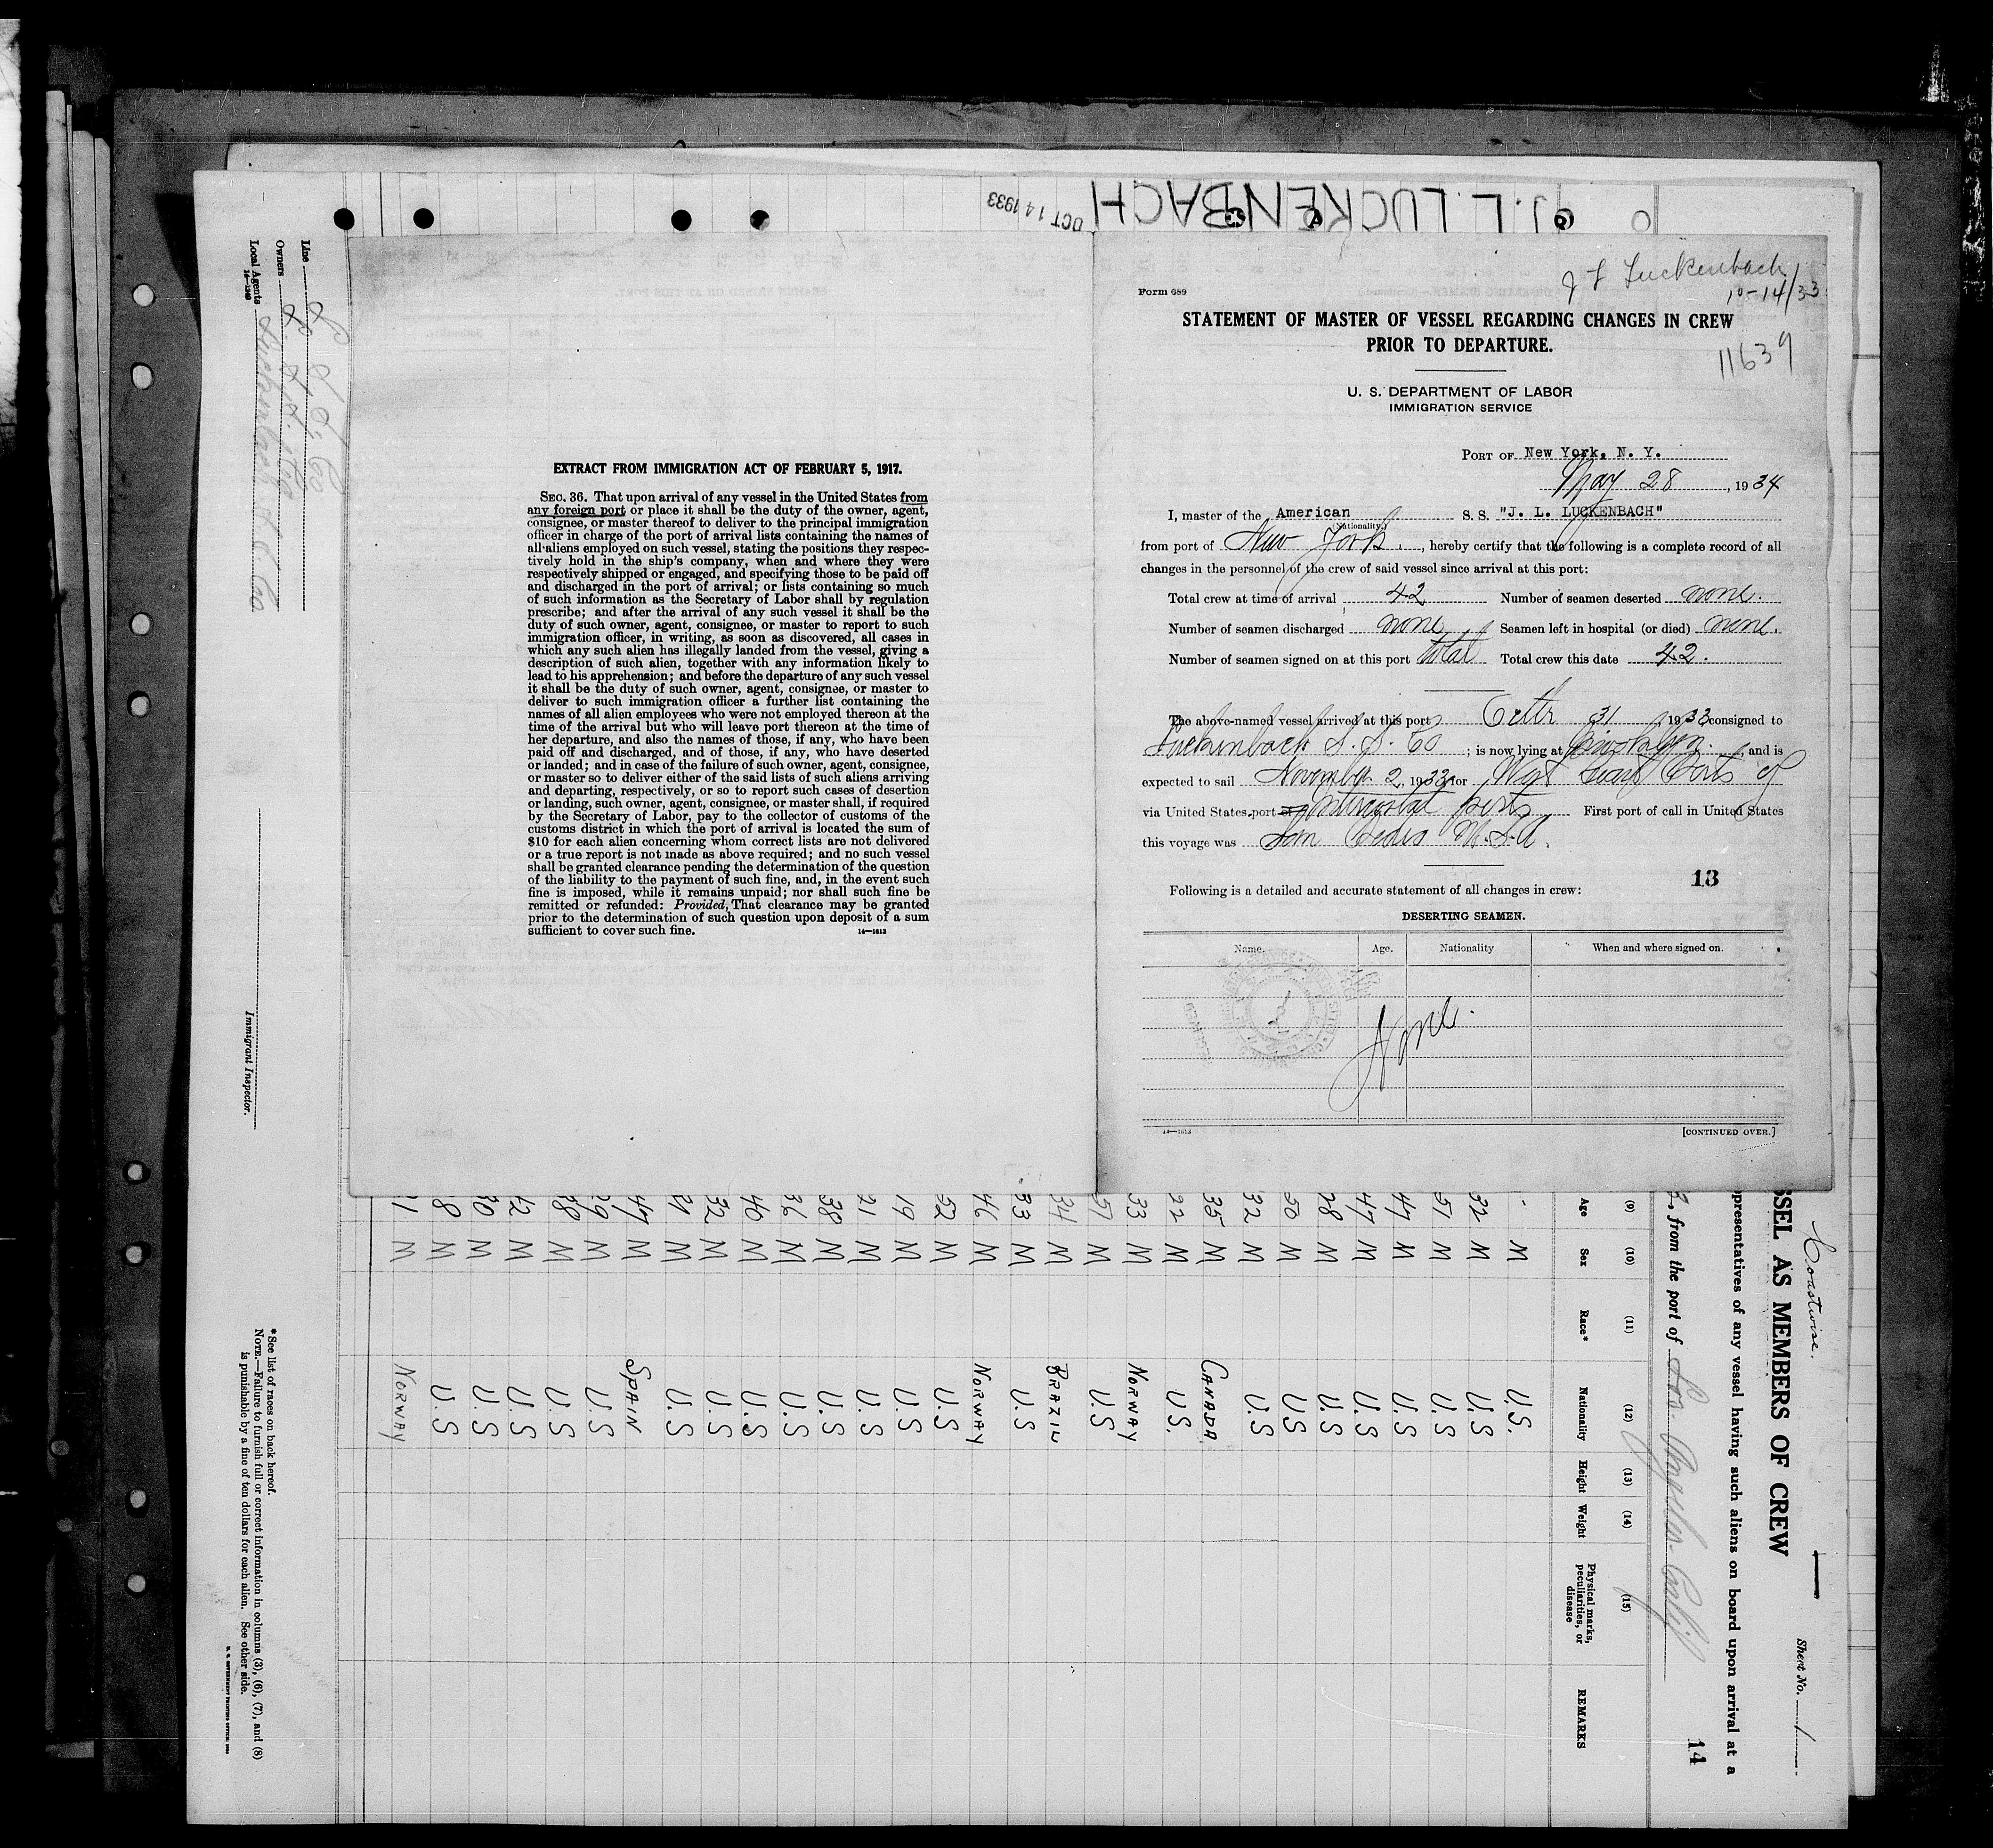 J. L. LUCKENBACH
OCT 14 1933
EXTRACT FROM IMMIGRATION ACT OF FEBRUARY 5, 1917.
SEC. 36. That upon arrival of any vessel in the United States from
any foreign port or place it shall be the duty of the owner, agent,
consignee, or master thereof to deliver to the principal immigration
officer in charge of the port of arrival lists containing the names of
all aliens employed on such vessel, stating the positions they respec-
tively hold in the ship's company, when and where they were
respectively shipped or engaged, and specifying those to be paid off
and discharged in the port of arrival; or lists containing so much
of such information as the Secretary of Labor shall by regulation
prescribe; and after the arrival of any such vessel it shall be the
duty of such owner, agent, consignee, or master to report to such
immigration officer, in writing, as soon as discovered, all cases in
which any such alien has illegally landed from the vessel, giving a
description of such alien, together with any information likely to
lead to his apprehension; and before the departure of any such vessel
it shall be the duty of such owner, agent, consignee, or master to
deliver to such immigration officer a further list containing the
names of all alien employees who were not employed thereon at the
time of the arrival but who will leave port thereon at the time of
her departure, and also the names of those, if any, who have been
paid off and discharged, and of those, if any, who have deserted
or landed; and in case of the failure of such owner, agent, consignee,
or master so to deliver either of the said lists of such aliens arriving
and departing, respectively, or so to report such cases of desertion
or landing, such owner, agent, consignee, or master shall, if required
by the Secretary of Labor, pay to the collector of customs of the
customs district in which the port of arrival is located the sum of
$10 for each alien concerning whom correct lists are not delivered
or a true report is not made as above required; and no such vessel
shall be granted clearance pending the determination of the question
of the liability to the payment of such fine, and, in the event such
fine is imposed, while it remains unpaid; nor shall such fine be
remitted or refunded: Provided, That clearance may be granted
prior to the determination of such question upon deposit of a sum
sufficient to cover such fine.
14—1613
J L Luckenbach
10-14/33
Form 689
STATEMENT OF MASTER OF VESSEL REGARDING CHANGES IN CREW
PRIOR TO DEPARTURE.
11639
U. S. DEPARTMENT OF LABOR
IMMIGRATION SERVICE
PORT OF New York, N. Y.
May 28, 1934
I, master of the American S. S. "J. L. LUCKENBACH"
(Nationality)
from port of New York, hereby certify that the following is a complete record of all
changes in the personnel of the crew of said vessel since arrival at this port:
Total crew at time of arrival 42 Number of seamen deserted none.
Number of seamen discharged none Seamen left in hospital (or died) none.
Number of seamen signed on at this port total Total crew this date 42.
The above-named vessel arrived at this port 31, 1933 consigned to
Luckenbach S. S. Co; is now lying at Brooklyn and is
expected to sail November 2, 1933, for West Coast Ports of
via United States port of Intercoastal ports First port of call in United States
this voyage was San Pedro
Following is a detailed and accurate statement of all changes in crew:
13
DESERTING SEAMEN.
Name. Age. Nationality When and where signed on.
None.
14—1613
[CONTINUED OVER.]
Coastwise.
Sheet No. 1
SSEL AS MEMBERS OF CREW
presentatives of any vessel having such aliens on board upon arrival at a
3, from the port of Los Angeles Calif
14
(9) (10) (11) (12) (13) (14) (15)
Age Sex Race* Nationality Height Weight Physical marks, peculiarities, or disease REMARKS
M U.S.
32 M U.S
51 M U.S
47 M U.S
47 M U.S
28 M U.S
50 M US
32 M U.S
35 M CANADA
22 M U.S.
33 M NORWAY
57 M U.S
34 M BRAZIL
33 M U.S
46 M NORWAY
52 M U.S
19 M U.S
21 M U.S
38 M U.S
36 M U.S
40 M U.S
32 M U.S
M U.S
47 M SPAIN
29 M U.S
38 M U.S
42 M U.S
30 M U.S
8 M U.S
1 M NORWAY
Line L. S. S. Co
Owners L. S. S. Co
Local Agents Luckenbach S S Co
14—1240
Immigrant Inspector.
*See list of races on back hereof.
NOTE.—Failure to furnish full or correct information in columns (3), (6), (7), and (8)
is punishable by a fine of ten dollars for each alien. See other side.